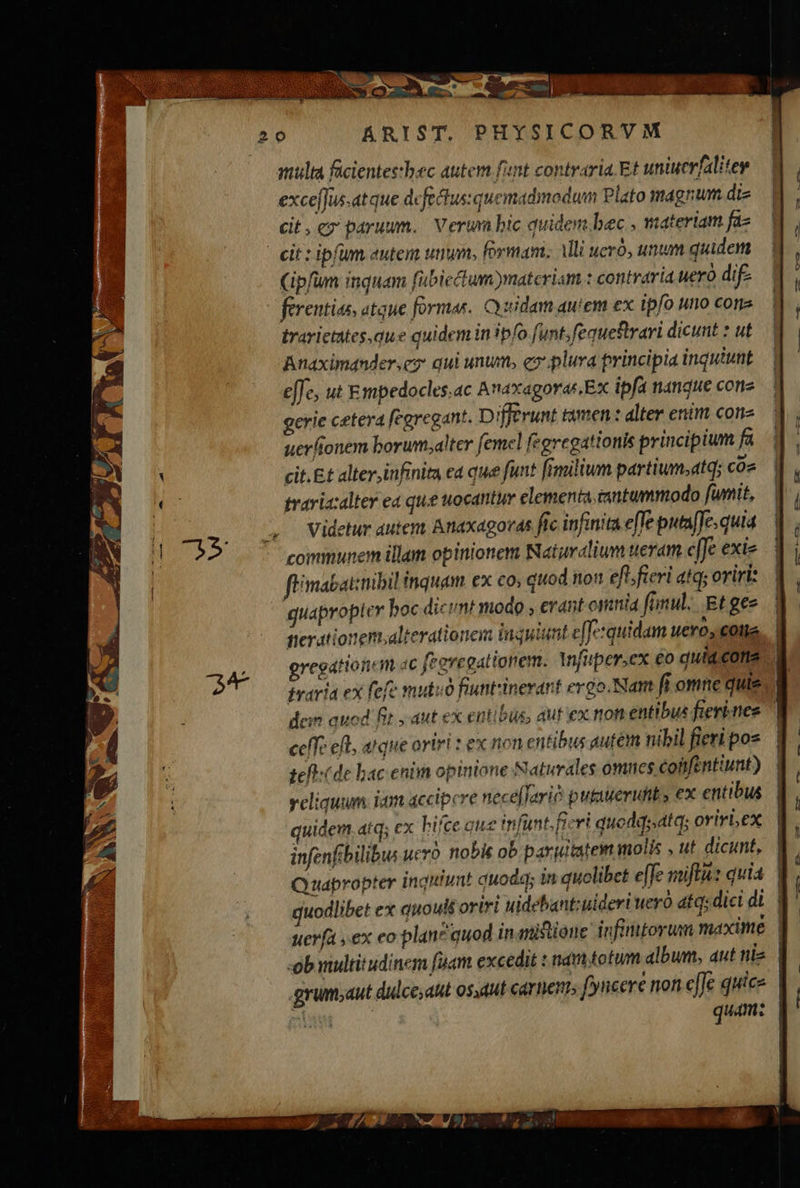 20 ARIST. PHYSICORVM
multa facientes:hæc autem sunt contraria. Et uniuersaliter
excessus.atque defectus:quemadmodum Plato magnum di-
cit, & paruum. Verum hic quidem hæc, materiam fa-
cit: ipsum autem unum, formam. Illi uerò, unum quidem
(ipsum inquam subiectum)materiam: contraria uerò dif-
ferentias, atque formas. Quidam autem ex ipso uno con-
trarietates,quæ quidem in ipso sunt,sequestrari dicunt: ut
Anaximander,& qui unum, & plura principia inquiunt
esse, ut Empedocles.ac Anaxagoras.Ex ipsa nanque con-
gerie cetera segregant. Differunt tamen: alter enim con-
uersionem horum,alter semel segregationis principium fa
cit.Et alter,infinita ea quæ sunt similium partium,atq; cō-
traria:alter ea quæ uocantur elementa.tantummodo sumit,
33 Videtur autem Anaxagoras sic infinita esse putasse,quia
communem illam opinionem Naturalium ueram esse exi-
stimabat:nihil inquam ex eo, quod non est,fieri atq; oriri:
quapropter hoc dicunt modo, erant omnia simul. Et ge-
nerationem,alterationem inquiunt esse:quidam uerò, con-
gregationem ac segregationem. Insuper,ex eo quia con-
34 traria ex sese mutuò fiunt:inerant ergo.Nam si omne qui-
dem quod fit, aut ex entibus, aut ex non entibus fieri ne-
cesse est, atque oriri: ex non entibus autem nihil fieri po-
test:(de hac enim opinione Naturales omnes consentiunt)
reliquum iam accipere necessariò putauerunt, ex entibus
quidem.atq; ex hisce quæ insunt.fieri quodq;,atq; oriri,ex
insensibilibus uerò nobis ob paruitatem molis, ut dicunt,
Quapropter inquiunt quodq; in quolibet esse mistū: quia
quodlibet ex quouis oriri uidebant:uideri uerò atq; dici di
uersa, ex eo planè quod in mistione infinitorum maximè
ob multitudinem suam excedit: nam totum album, aut ni-
grum,aut dulce,aut os,aut carnem, syncerè non esse quic-
quam: